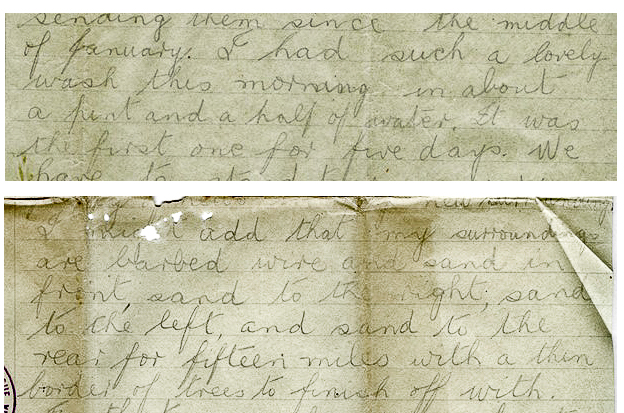 sending them since the middle
of January. I had such a lovely
wash this morning in about
a pint and a half of water. It was
the first one for five days. We
have to
I might add that my surroundings
are barbed wire and sand in
front, sand to the right, sand
to the left, and sand to the
rear for fifteen miles with a thin
border of trees to finish off with.